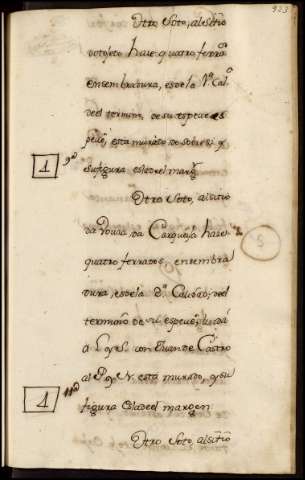 Otro Soto, alsitio
dotojeto hace quatro ferra.ᵒ
ensembradura, es de la 1ª Cal.ᵈ
del termino de su especie es
pecie, esta murado de sobre si y
su figura es la del marg.ⁿ
Otro Soto, alsitio
da Pousa, da Carqueija hace
quatro ferrados, ensembra
dura, es de la 2ª Calidad, del
termino de su especie, linda
a L. y S. con Juan de Castro
al P. y N. esta murado, y su
figura es la del margen
Otro Soto, alsitio
1
1